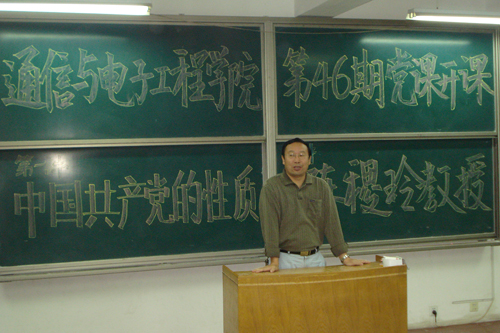 通信与电子工程学院
第46期党课开课
第
中国共产党的性质
稷玲教授